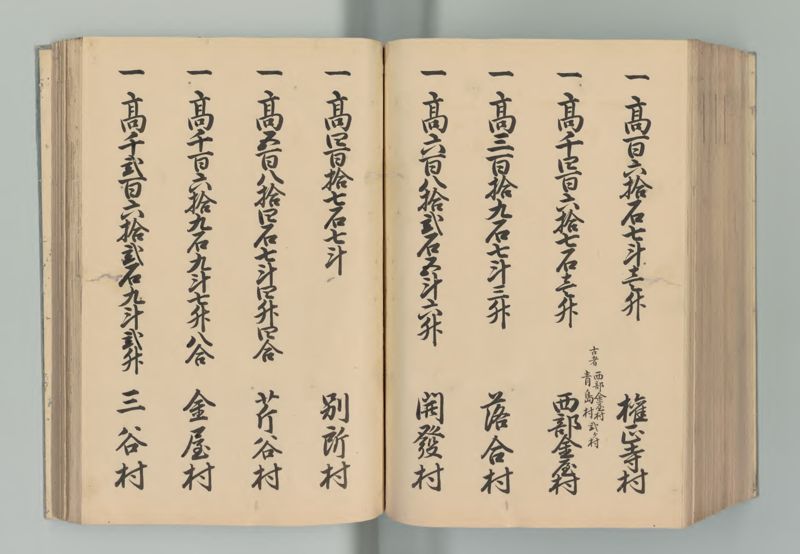 一 高百六拾石七斗壱升 權正寺村
一 高千四百六拾七石壱升 古者 西部金屋村 青島村 弐ヶ村 西部金屋村
一 高三百拾九石七斗三升 落合村
一 高六百八拾弐石五斗六升 開發村
一 高四百拾七石七斗 別所村
一 高五百八拾四石七斗四升四合 芹谷村
一 高千百六拾九石九斗七升八合 金屋村
一 高千弐百六拾弐石九斗弐升 三谷村